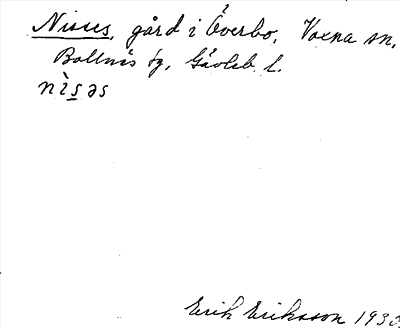 Nisses, gård i Överbo, Voxna sn,
Bollnäs tg, Gävleb. l.
nìsəs
Erik Eriksson 1933